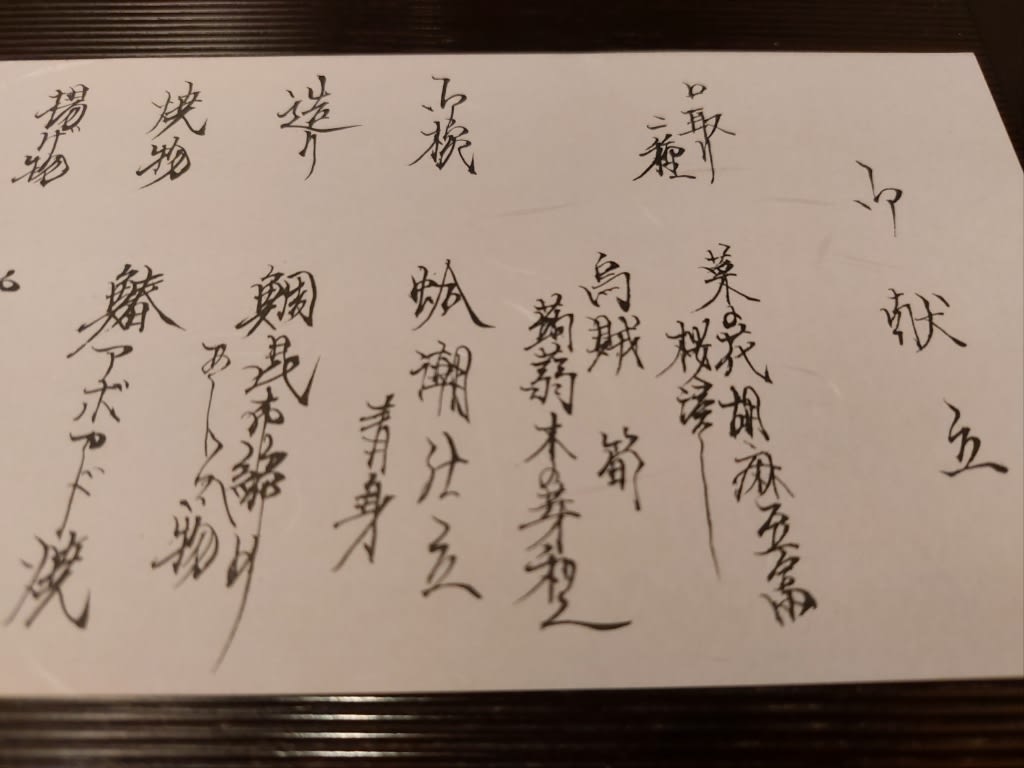 御献立
口取り
二種
菜の花胡麻豆富
桜
烏賊 筍
蒟蒻木の芽和え
御椀
蛤潮仕立
青身
造り
鯛昆布締り
あしらへ物
焼物
鰆アボカド焼
揚げ物